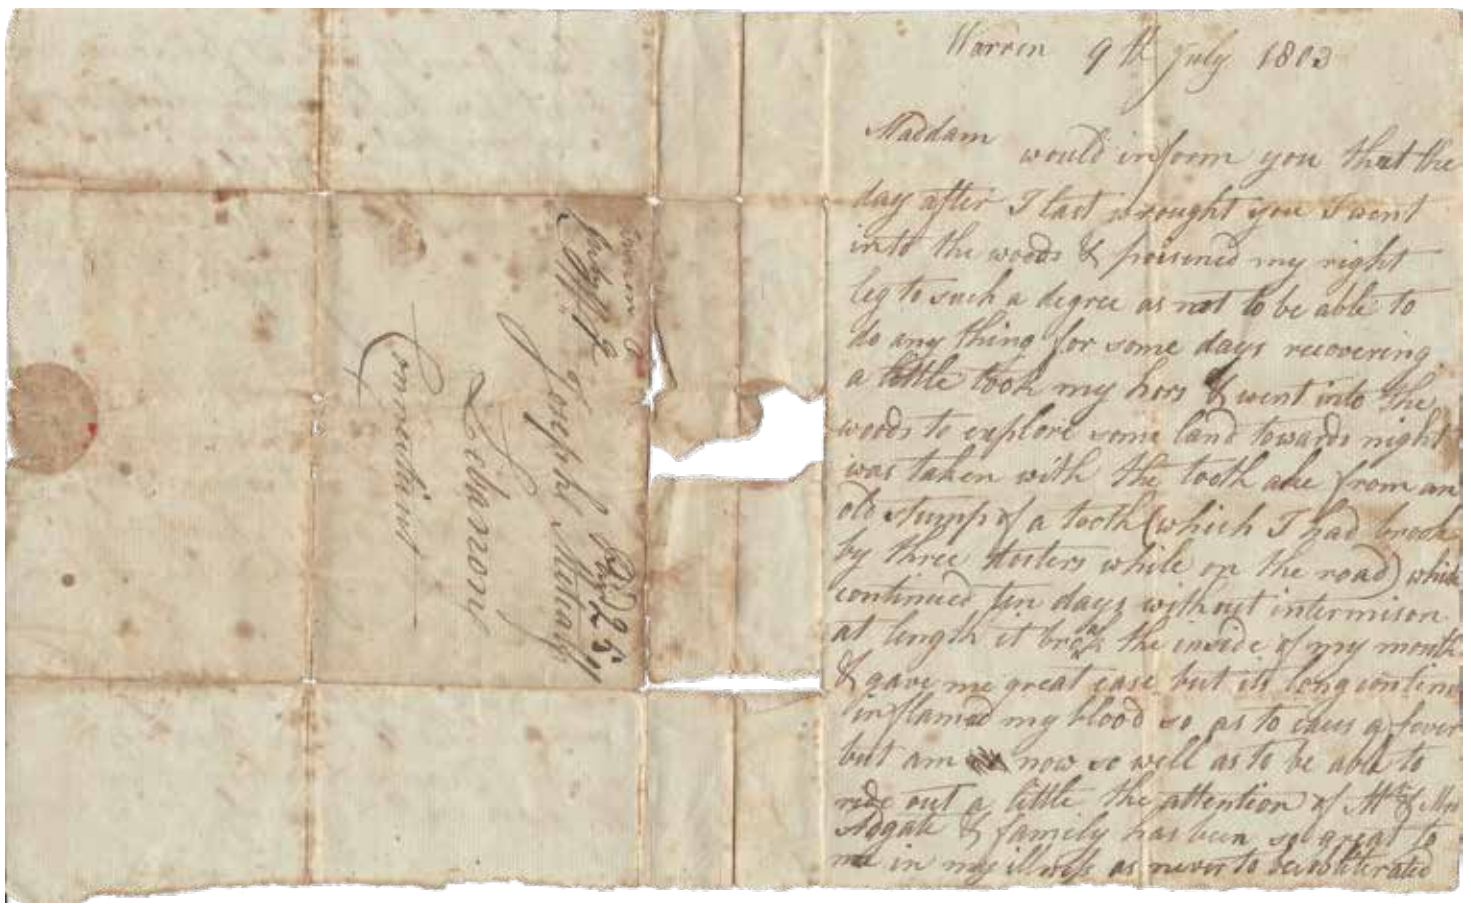 Warren 9th July 1803
Maddam
would inform you that the
day after I last wrought you I went
into the woods & poisined my right
leg to such a degree as not to be able to
do any thing for some days recovering
a little took my hors & went into the
woods to explore some land towards night
was taken with the tooth ake from an
old stump of a tooth (which I had brook
by three
while on the road) which
continued ten days without intermison
at length it break the inside of my mouth
& gave me great ease but its long continu
inflamed my blood so as to caus a fever
but am now so well as to be able to
ride out a little the attention of Mr & Mrs
Adgate & family has been so great to
me in my illness as never to be obliterated
Warren
July
Joseph
Sharron
Connecticut
25